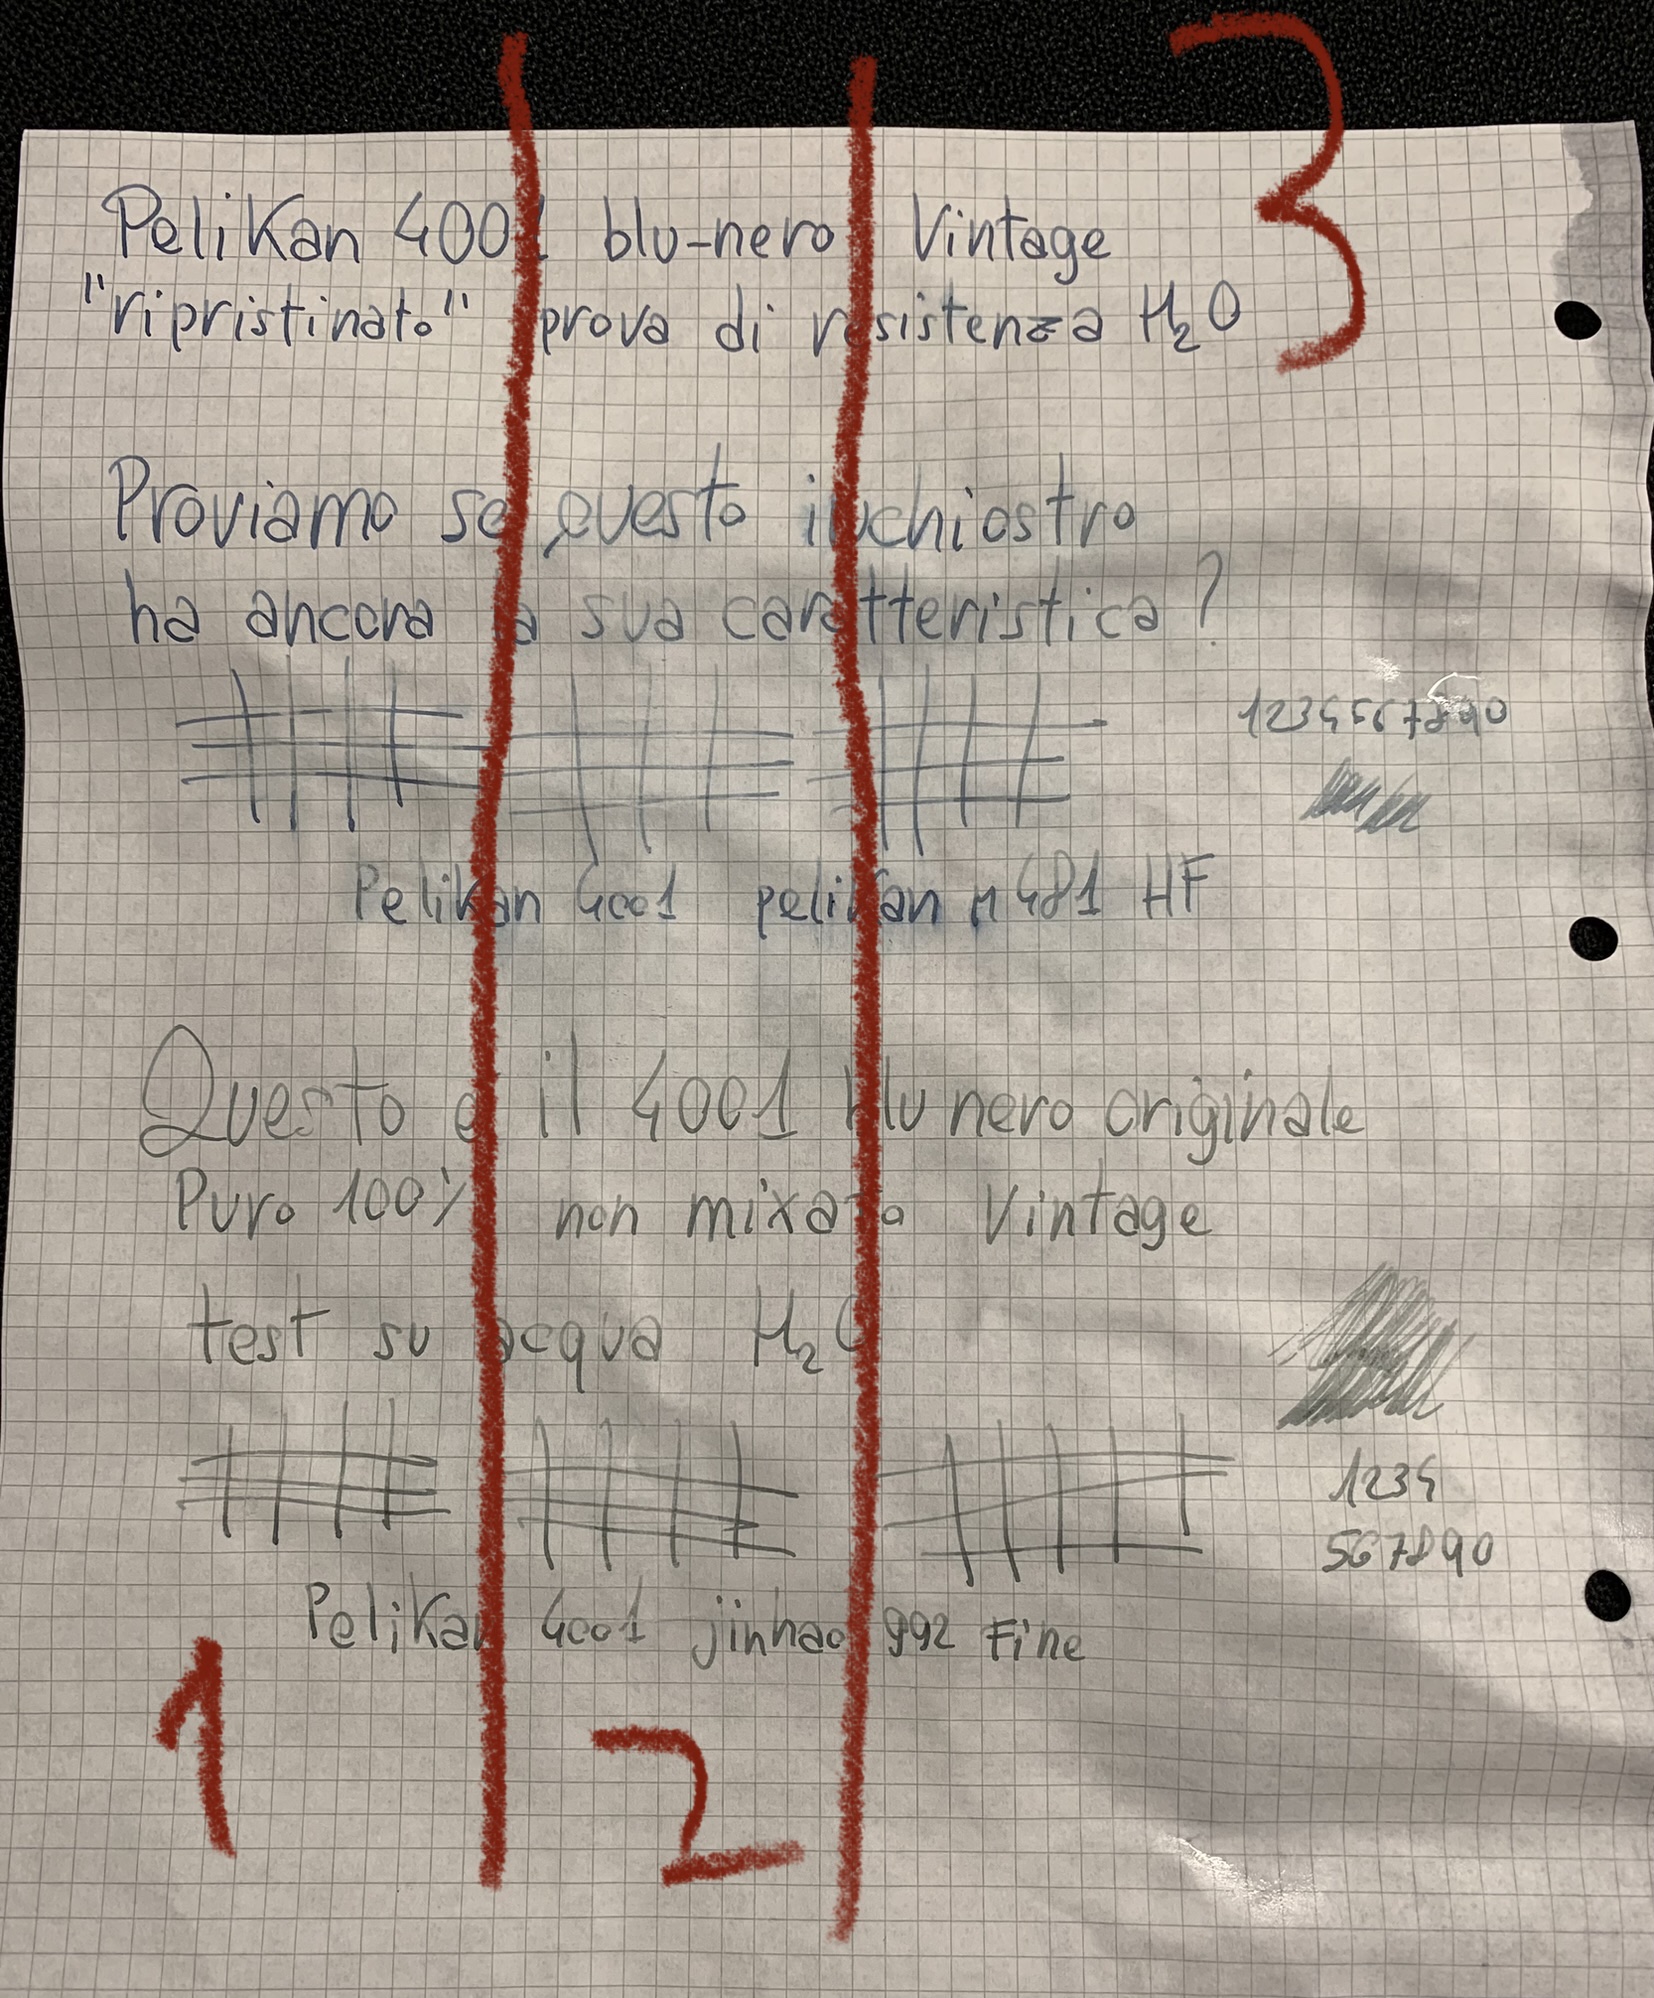 3
Pelikan 4001 blu-nero Vintage
"ripristinato" prova di resistenza H₂O
Proviamo se questo inchiostro
ha ancora la sua caratteristica?
1234567890
Pelikan 4001 pelikan M481 HF
Questo e il 4001 blu nero originale
Puro 100% non mixato Vintage
test su acqua H₂O
1234
567890
Pelikan 4001 jinhao 992 Fine
1
2